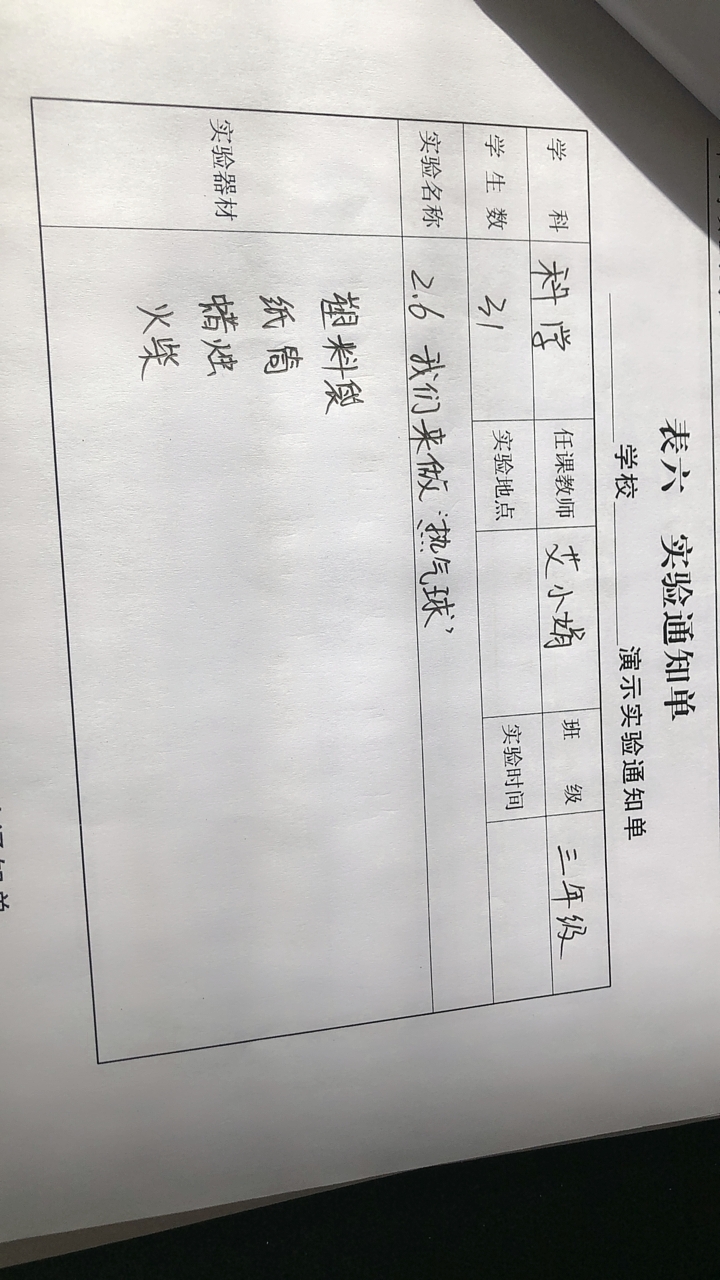 表六 实验通知单
学校 演示实验通知单
学 科 科学 任课教师 艾小娟 班 级 三年级
学 生 数 31 实验地点 实验时间
实验名称 2.6 我们来做“热气球”
实验器材 塑料袋
纸筒
蜡烛
火柴